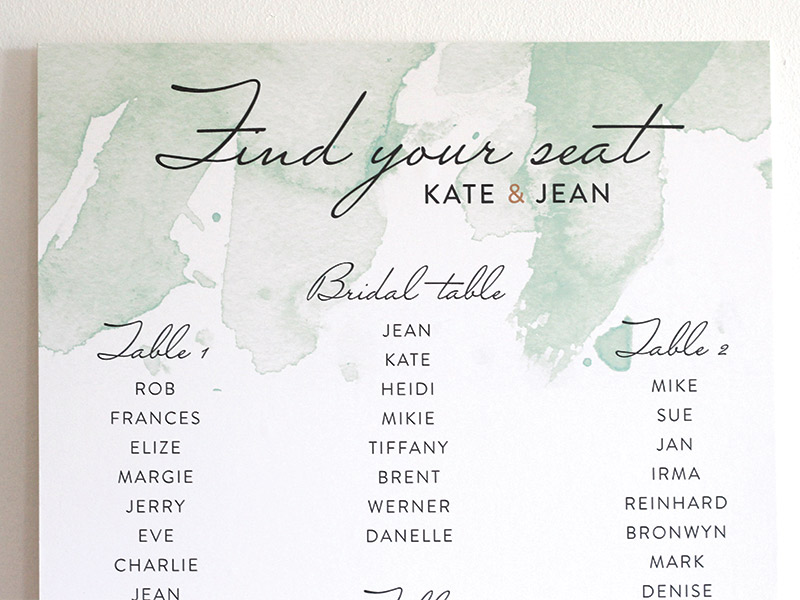 Find your seat
KATE & JEAN
Bridal table
JEAN
KATE
HEIDI
MIKIE
TIFFANY
BRENT
WERNER
DANELLE
Table 1
ROB
FRANCES
ELIZE
MARGIE
JERRY
EVE
CHARLIE
JEAN
Table 2
MIKE
SUE
JAN
IRMA
REINHARD
BRONWYN
MARK
DENISE